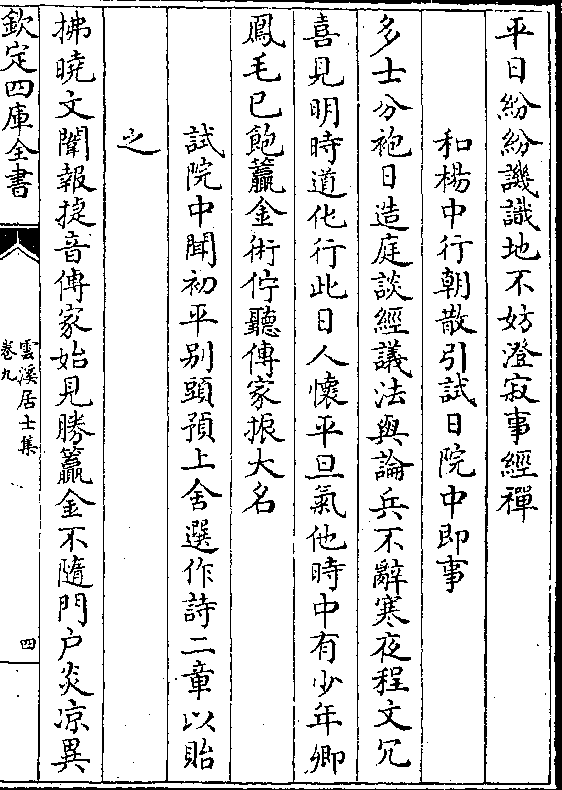 平日紛紛譏識地不妨澄寂事經禪
和楊中行朝散引試日院中即事
多士分袍日造庭談經議法與論兵不辭寒夜程文冗
喜見明時道化行此日人懷平旦氣他時中有少年卿
鳳毛已飽籯金術佇聽傳家振大名
試院中聞初平別頭預上舍選作詩二章以貽
之
拂曉文闈報捷音傳家始見勝籯金不隨門户炎凉異
欽定四庫全書
雲溪居士集
卷九
四